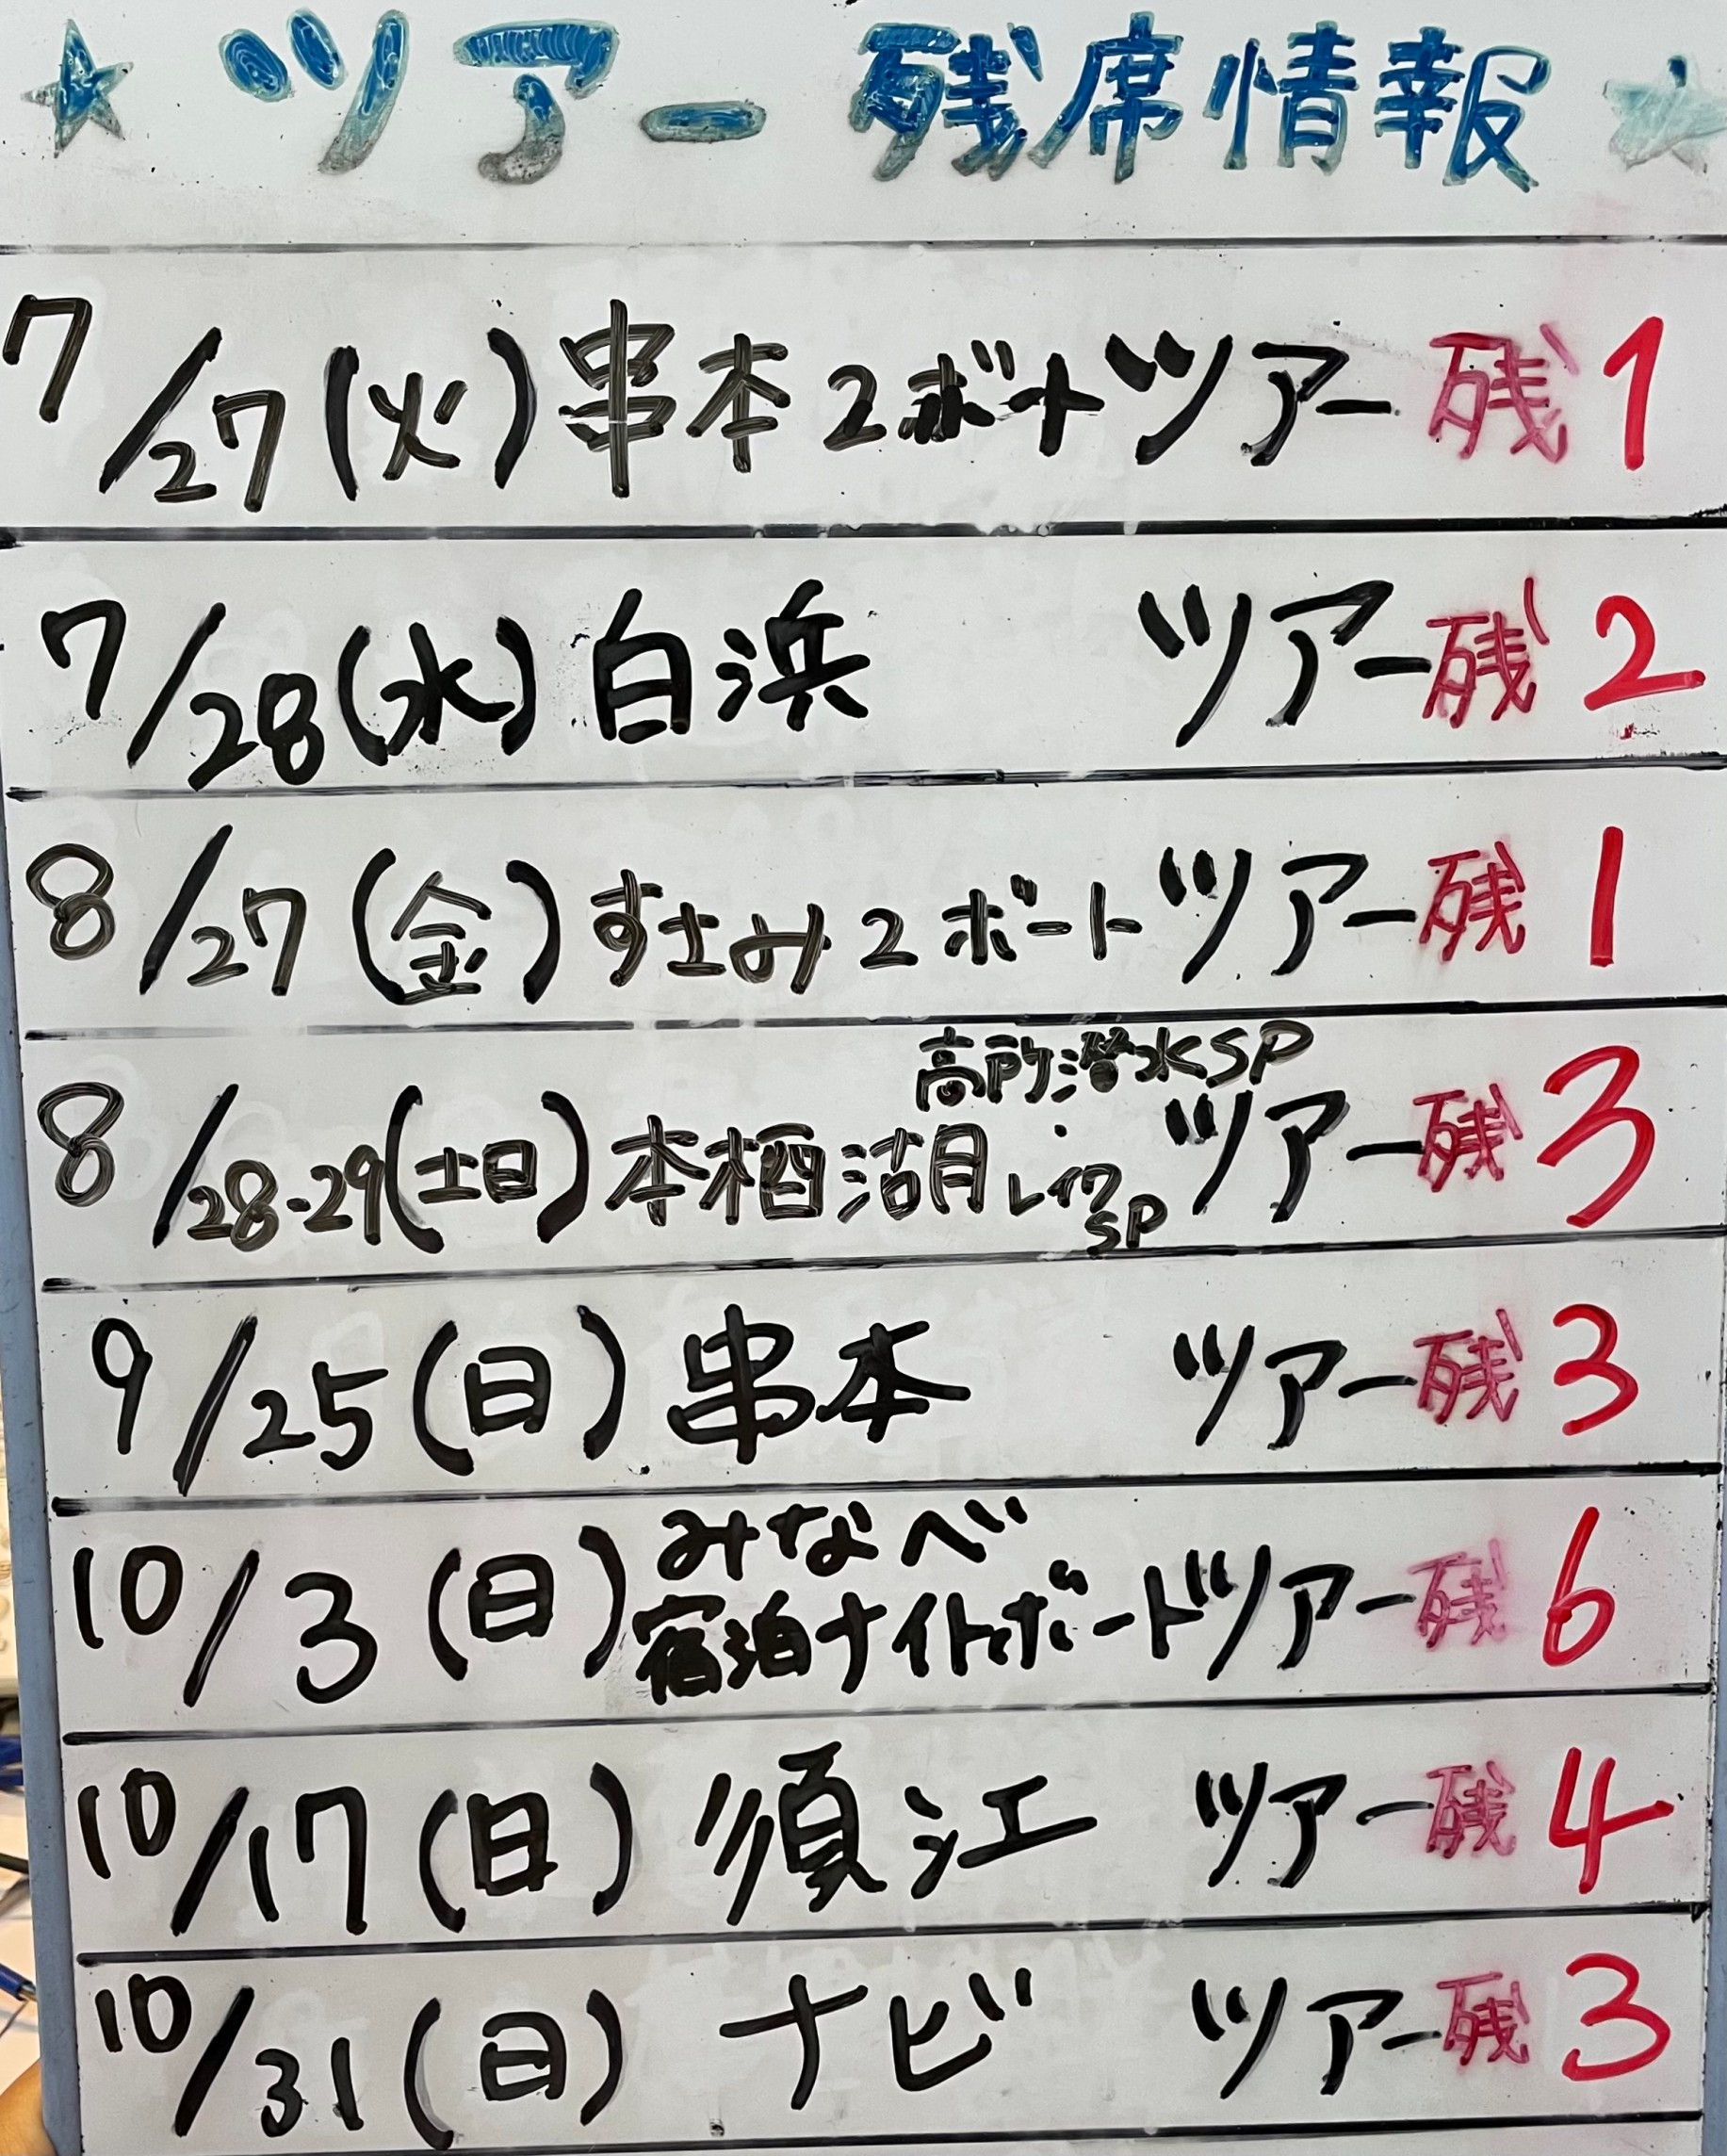 ★ ツアー 残席情報 ★
7/27(火)串本2ボートツアー残1
7/28(水)白浜 ツアー残2
8/27(金)すさみ2ボートツアー残1
高所潜水SP
8/28-29(土日)本栖湖 ツアー残3
SP
9/25(日)串本 ツアー残3
みなべ
10/3(日)宿泊ナイトボートツアー残6
10/17(日)須江 ツアー残4
10/31(日)ナビ ツアー残3